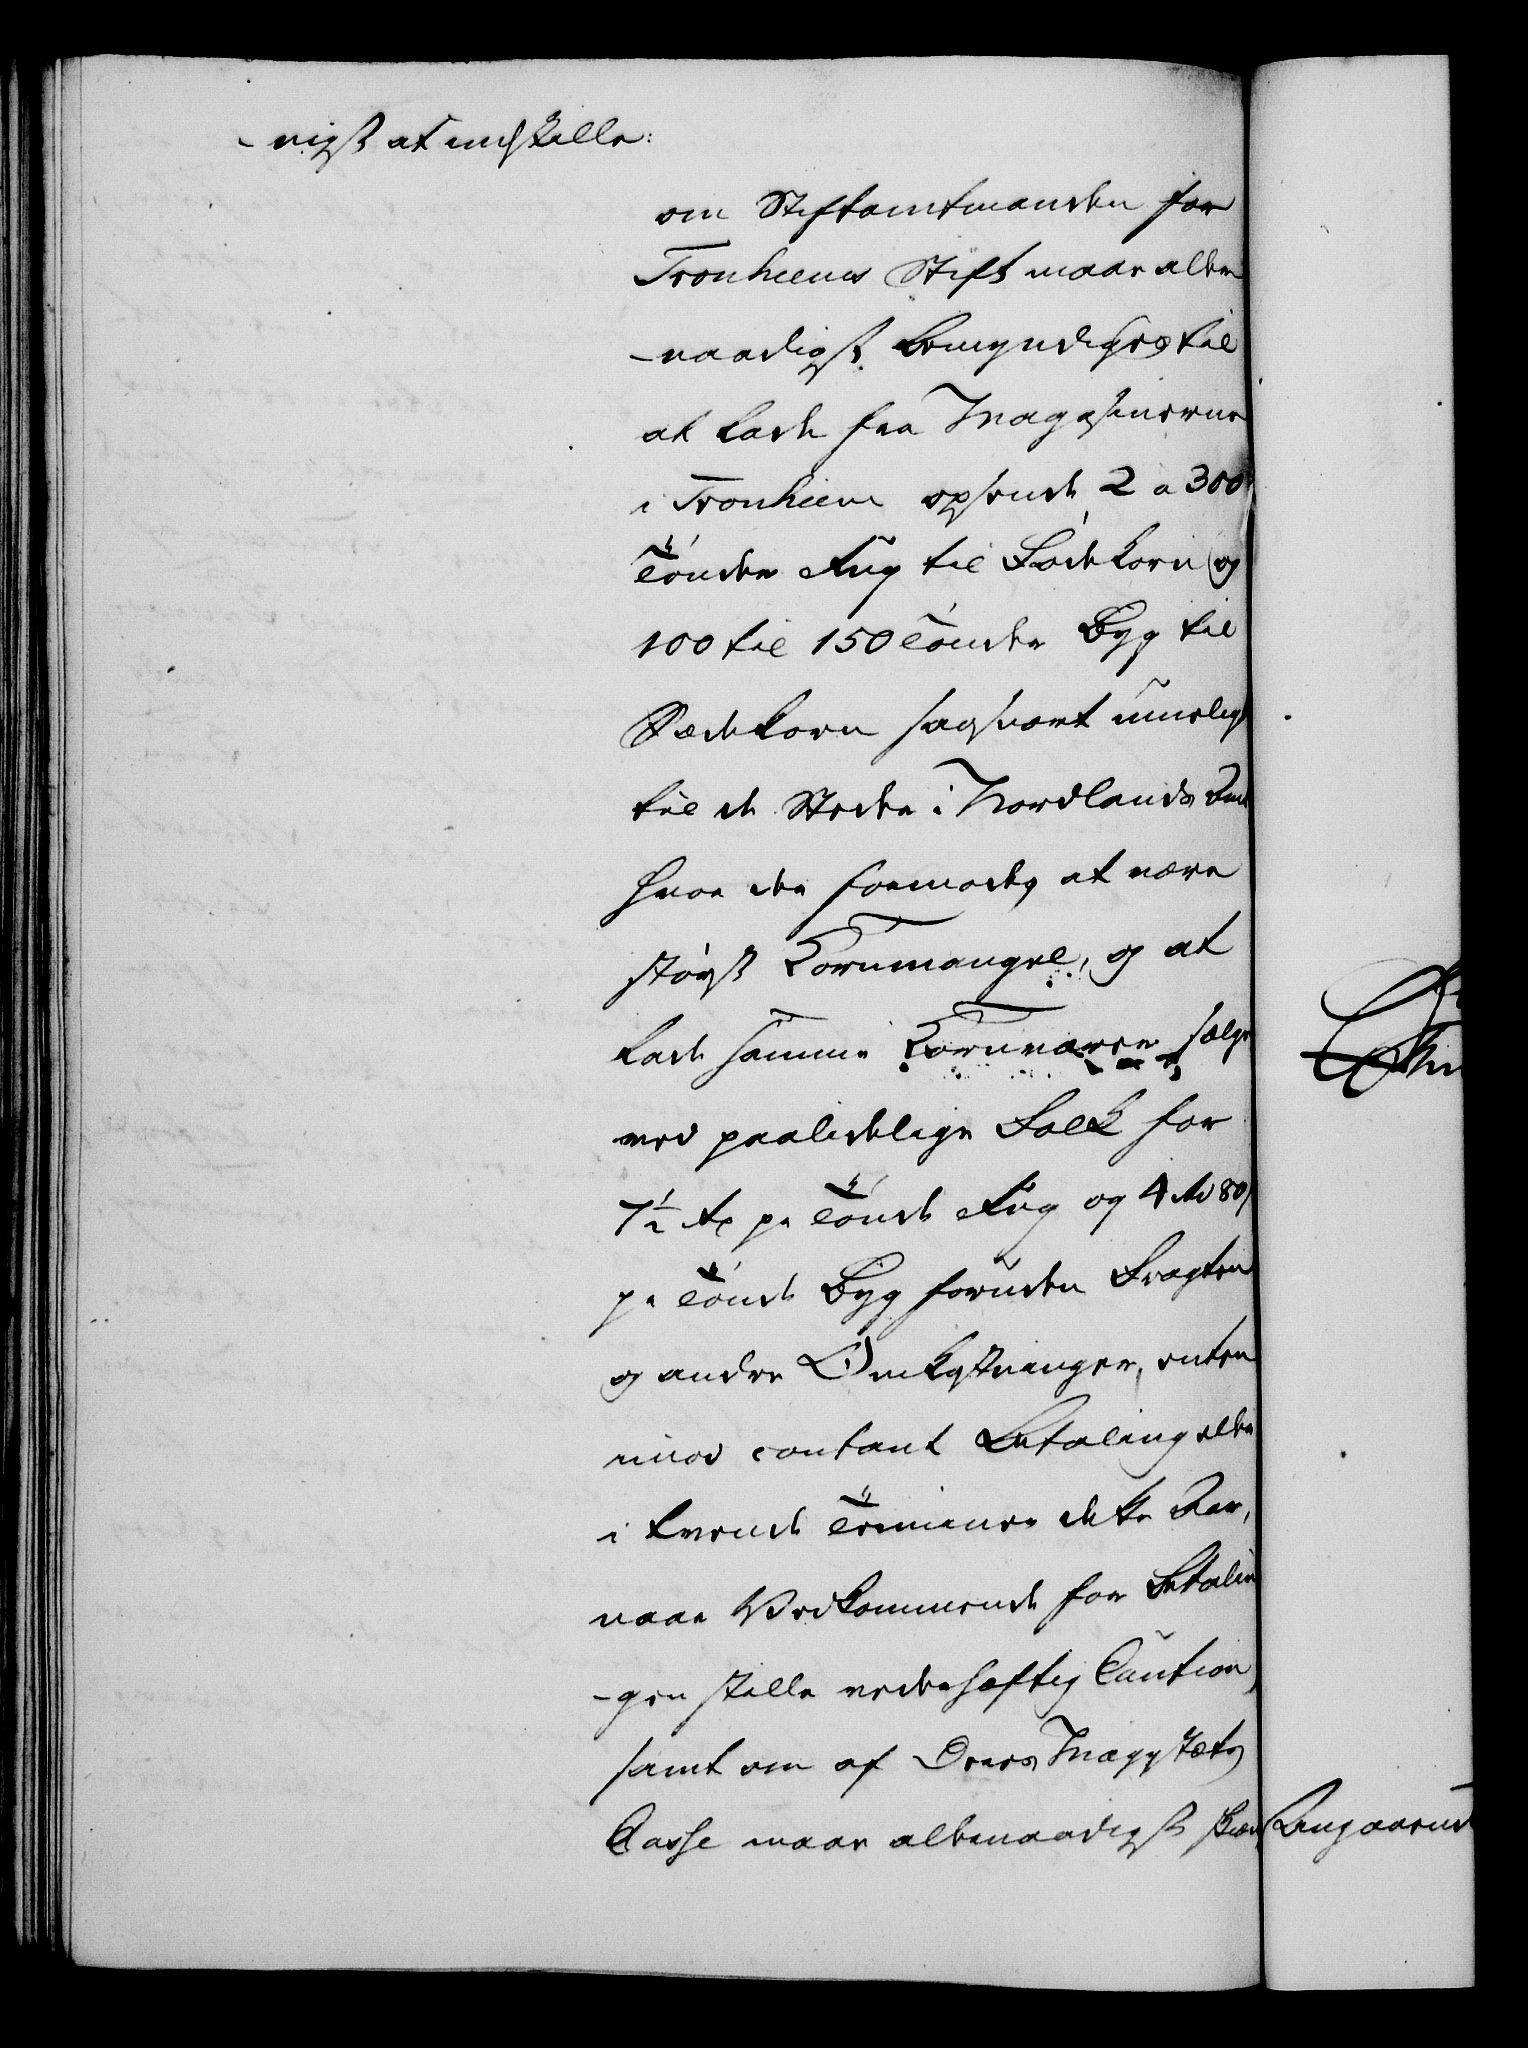 -nigst at indstille:
om Stiftamtmanden for
Tronhiems Stift maae aller
-naadigst bemyndiges til
at lade fra Magasinerne
i Tronhiem opsende 2 a 300
Tønder Rug til Fødekorn og
100 til 150 Tønder Byg til
Sædekorn sasnart mueligt
til de Steder i Nordlands Amt
hvor der formodes at være
størst Kornmangel, og at
lade samme Kornvarer sælge
ved paalidelige Folk for
7½ Rd pr Tønde Rug og 4 Rd 80
pr Tønde Byg foruden Fragten
og andre Omkostninger, enten
imod contant Betaling eller
i tvende Terminer dette Aar,
naar Vedkommende for Betalin
-gen stille vederhæftig Caution,
samt om af Deres Majestæts
Casse maae allernaadigst
Angaaende